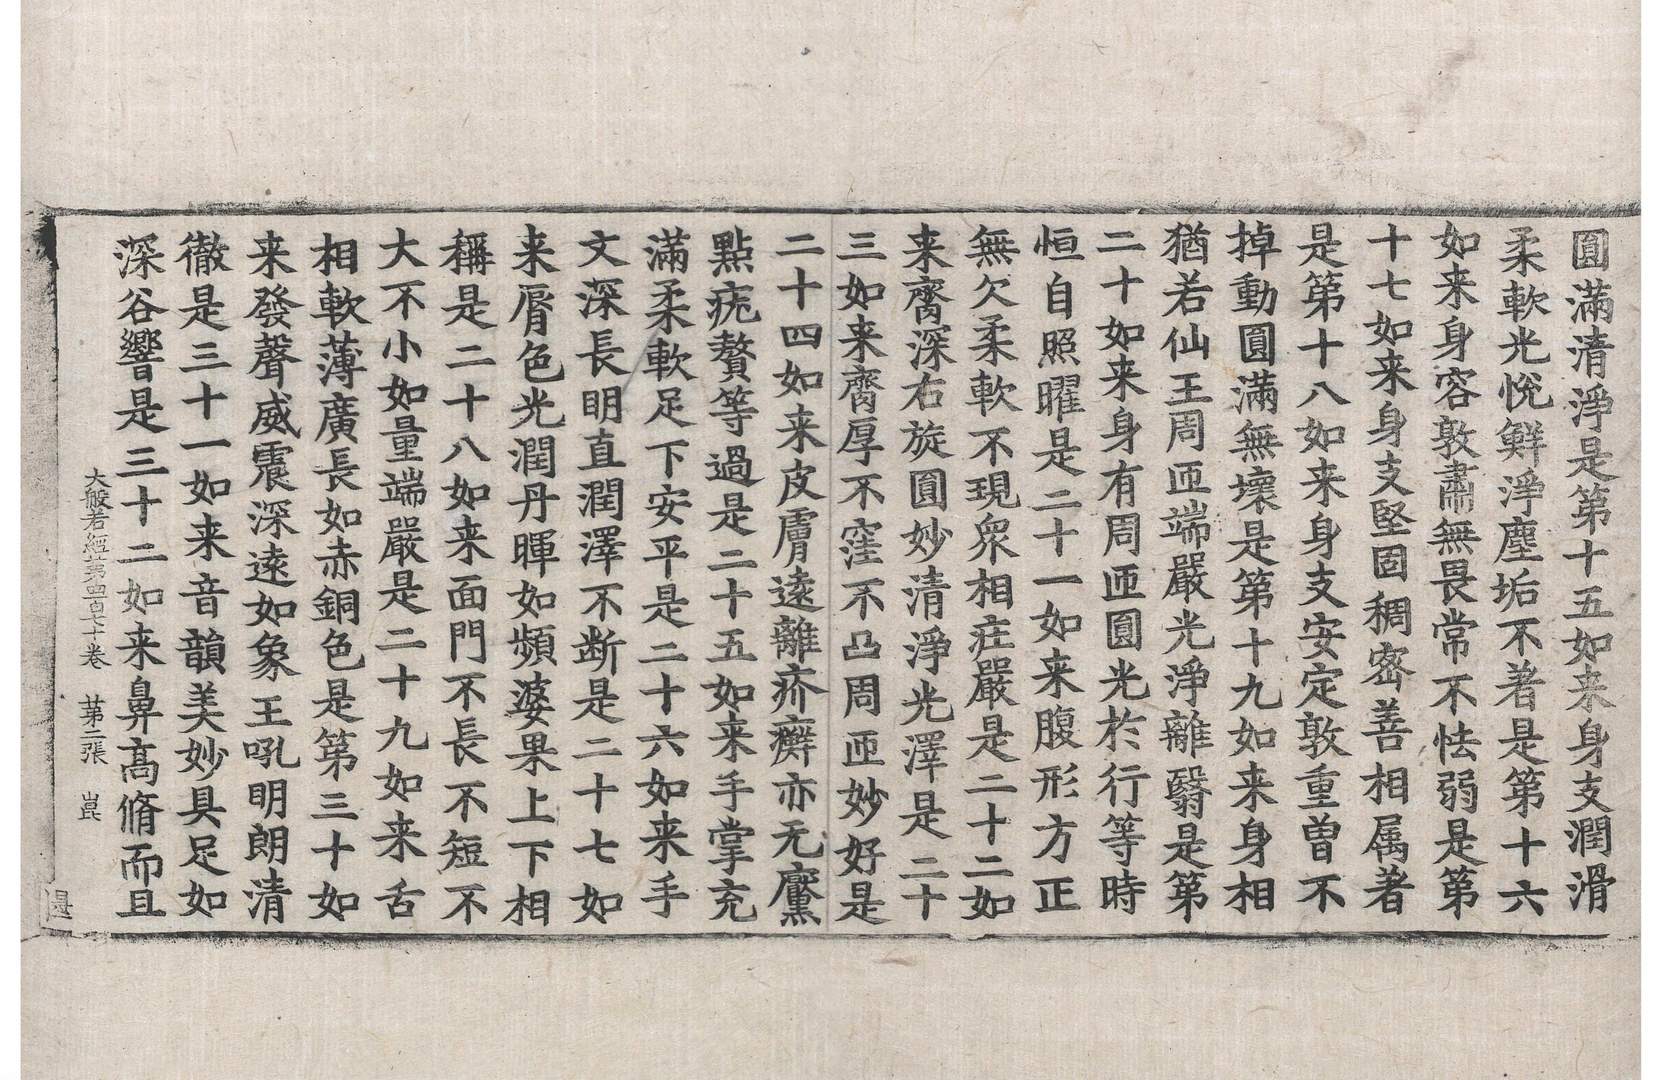 圓滿清淨是第十五如来身支潤滑
柔軟光悅鮮淨塵垢不著是第十六
如来身容敦肅無畏常不怯弱是第
十七如来身支堅固稠密善相属著
是第十八如来身支安定敦重曾不
掉動圓滿無壞是第十九如来身相
猶若仙王周匝端嚴光淨離翳是第
二十如来身有周匝圓光於行等時
恒自照曜是二十一如来腹形方正
無欠柔軟不現衆相庄嚴是二十二如
来齊深右旋圓妙清淨光澤是二十
三如来齊厚不窪不凸周匝妙好是
二十四如来皮膚遠離疥癬亦无黡
點疣贅等過是二十五如来手掌充
滿柔軟足下安平是二十六如来手
文深長明直潤澤不断是二十七如
来脣色光潤丹暉如頻婆果上下相
稱是二十八如来面門不長不短不
大不小如量端嚴是二十九如来舌
相軟薄廣長如赤銅色是第三十如
来發聲威震深遠如象王吼明朗清
徹是三十一如来音韻美妙具足如
深谷響是三十二如来鼻髙脩而且
大般若經苐四百七十卷　苐二張　崑